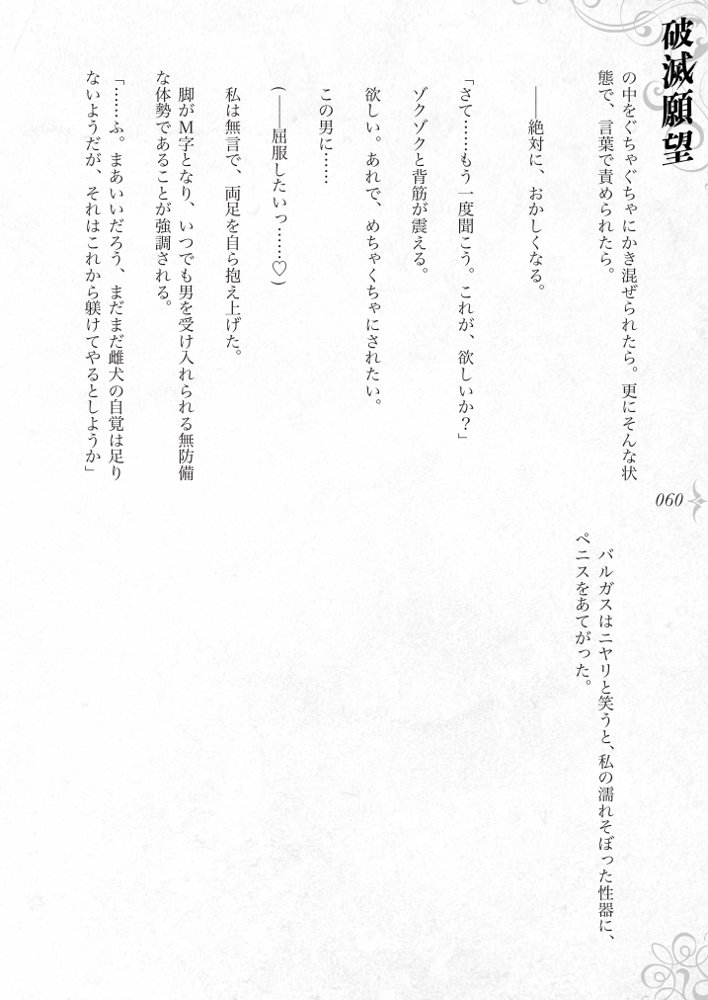 破滅願望
の中をぐちゃぐちゃにかき混ぜられたら。更にそんな状
態で、言葉で責められたら。
――絶対に、おかしくなる。
「さて……もう一度聞こう。これが、欲しいか？」
ゾクゾクと背筋が震える。
欲しい。あれで、めちゃくちゃにされたい。
この男に……
(――屈服したいっ……♡)
私は無言で、両足を自ら抱え上げた。
脚がＭ字となり、いつでも男を受け入れられる無防備
な体勢であることが強調される。
「……ふ。まあいいだろう、まだまだ雌犬の自覚は足り
ないようだが、それはこれから躾けてやるとしようか」
バルガスはニヤリと笑うと、私の濡れそぼった性器に、
ペニスをあてがった。
060